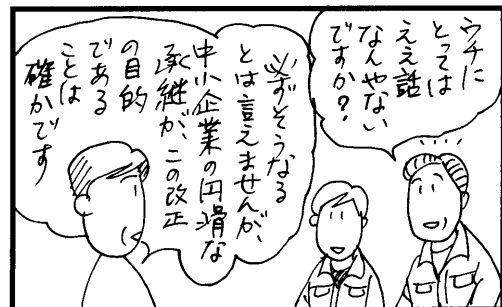 ウチに
とっては
ええ話
なんやない
ですか?
必ずそうなる
とは言えませんが、
中小企業の円滑な
承継が、この改正
の目的
である
ことは
確かです